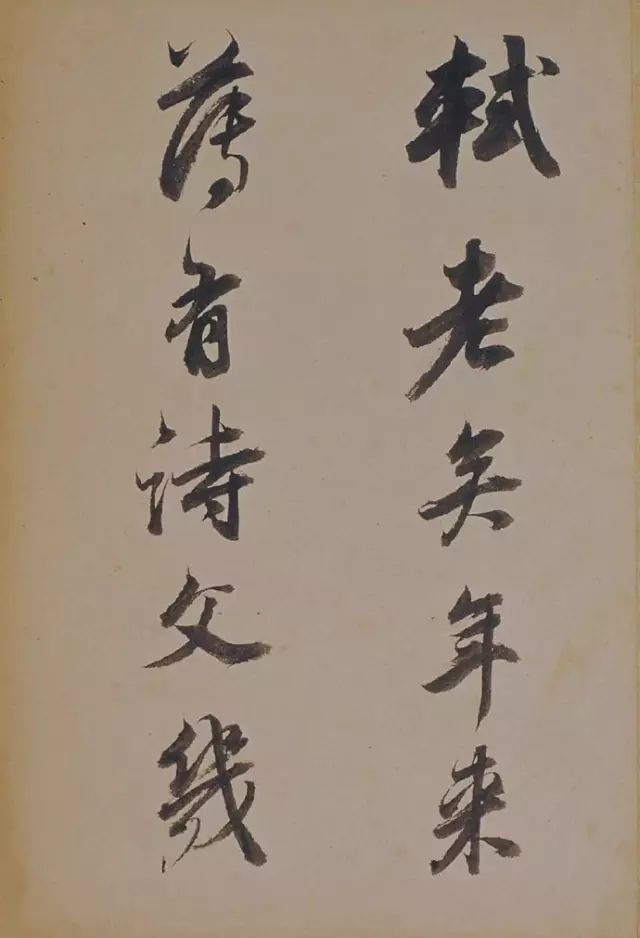 軾老矣年来
薄有詩文幾